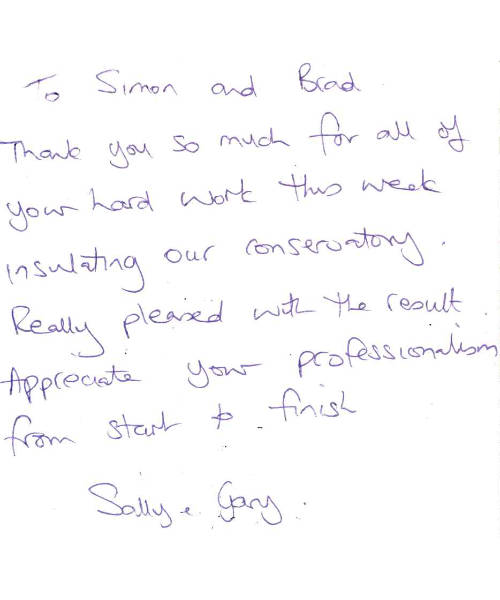 To Simon and Brad
Thank you so much for all of
your hard work this week
insulating our conservatory.
Really pleased with the result.
Appreciate your professionalism
from start to finish
Sally & Gary.